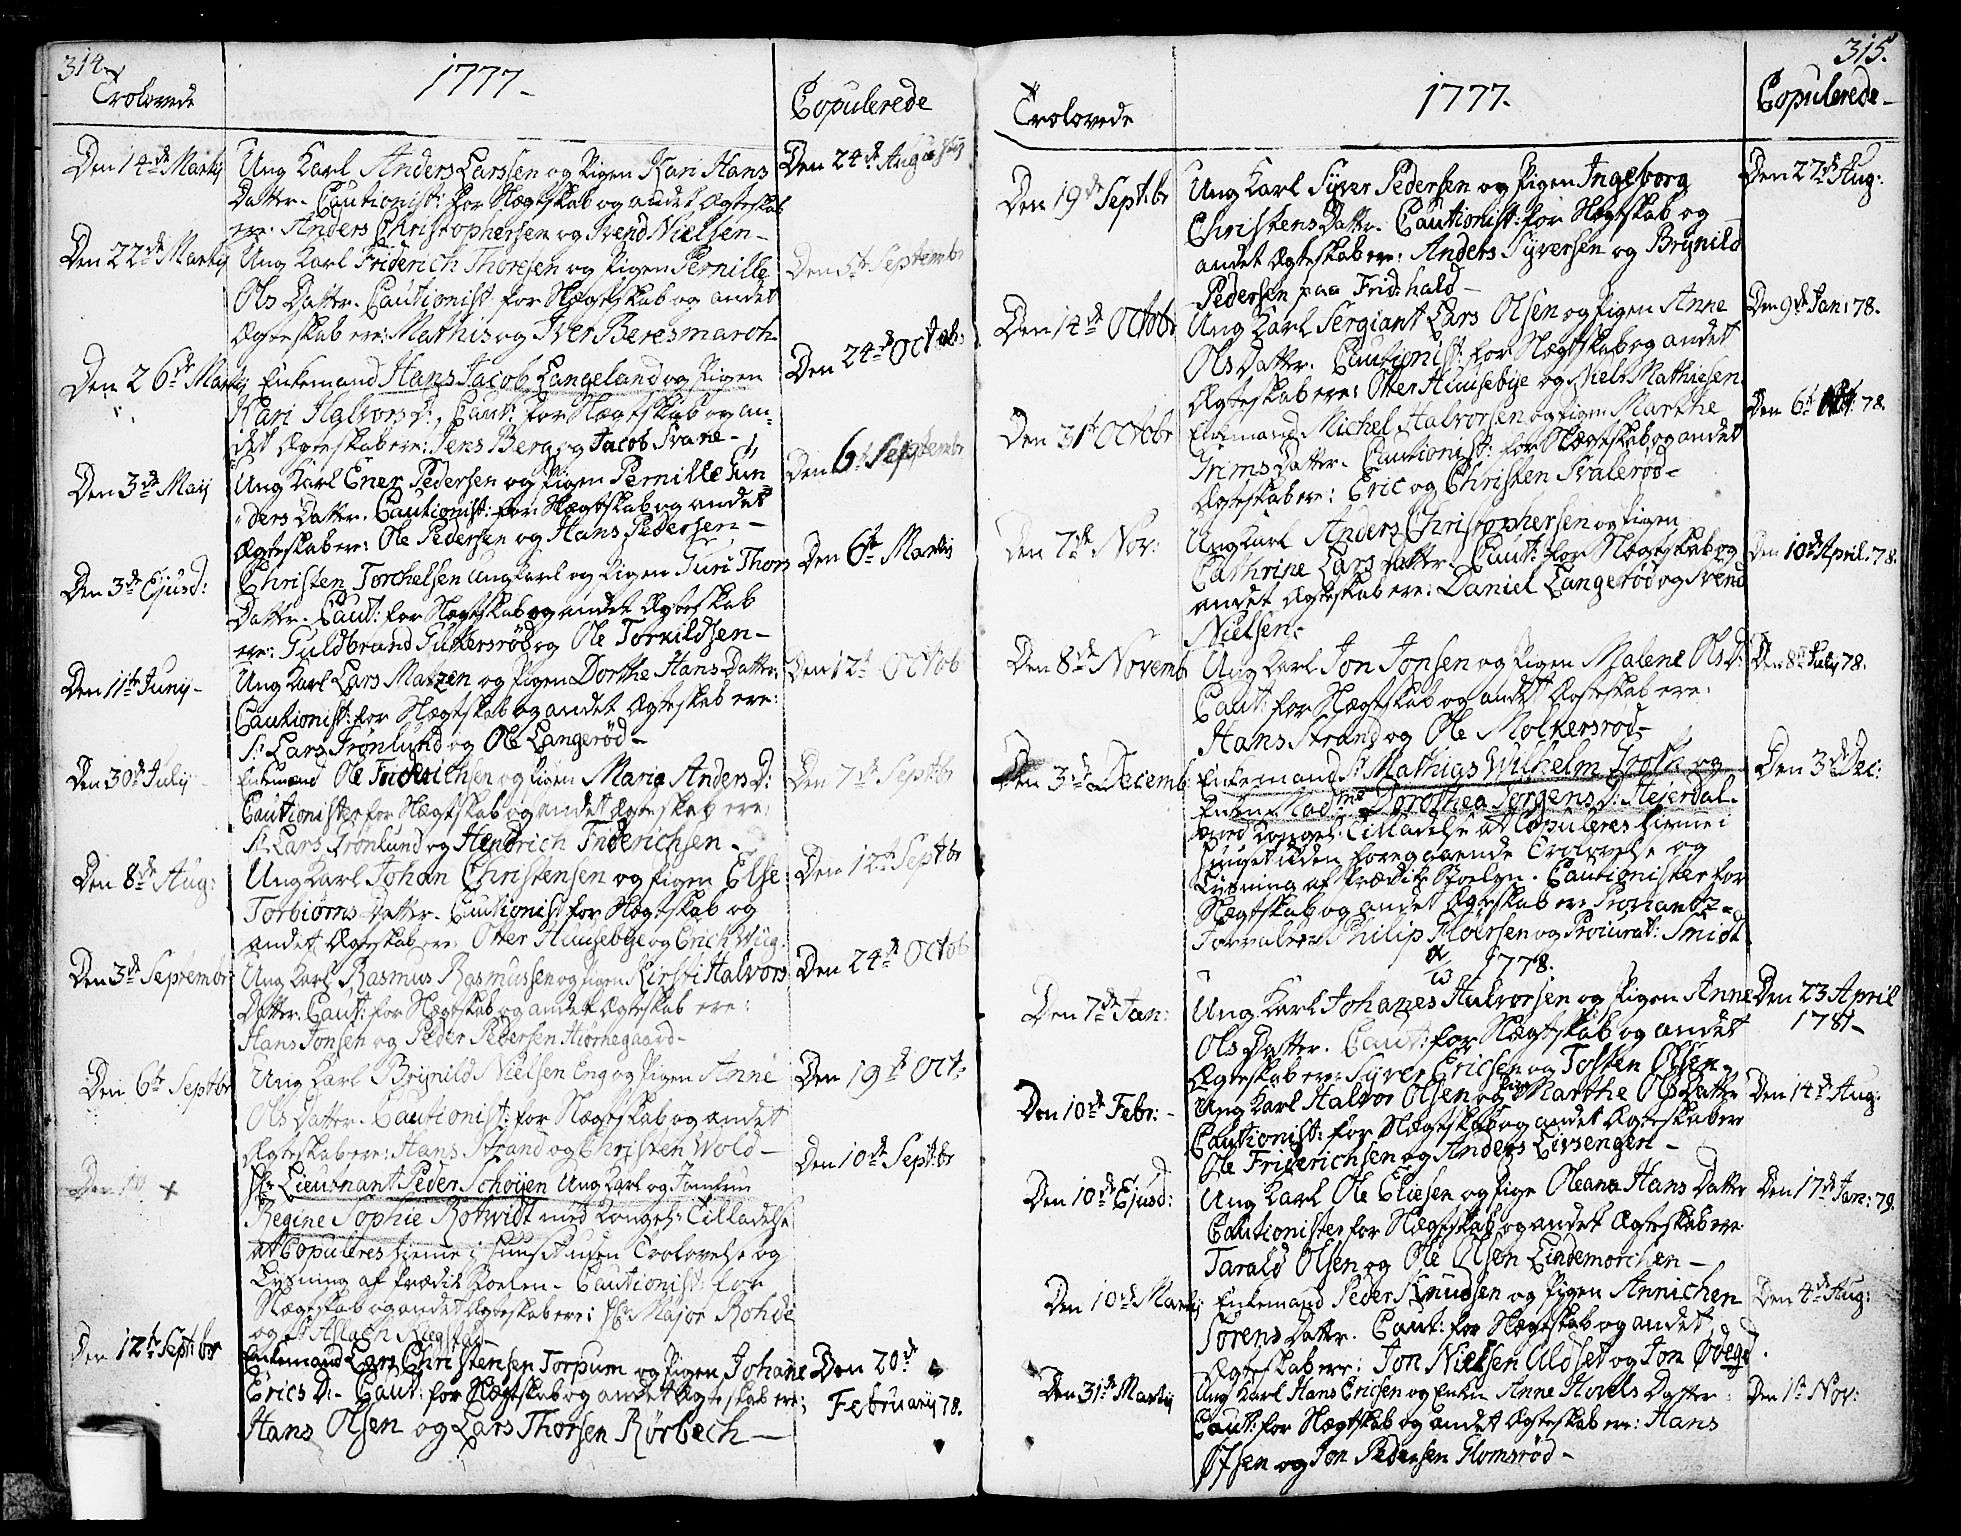 314.
Trolovede
1777.
Copulerede
Den 14de Martij
Ung Karl Anders Larssen og Pigen Kari Hans
Datter. Cautionist: for Slægtskab og andet Ægteskab
ere: Anders Christophersen og Svend Nielsen
Den 24de Augustij
Den 22de Martij
Ung Karl Friderich Thoresen og Pigen Pernille
Ols Datter. Cautionist: for Slægtskab og andet
Ægteskab ere: Mathis og Iver Beresmarch
Den 5te Septembr
Den 26de Martij
Enkemand Hans Jacob Langeland og Pigen
Kari Halvors D:, Caut: for Slægtskab og an-
det Ægteskab ere: Jens Berg og Jacob Svane
Den 24de Octob:
Den 3de Maij
Ung Karl Ener Pedersen og Pigen Pernille Gun
ders Datter. Cautionist: for Slægtskab og andet
Ægteskab ere: Ole Pedersen og Hans Pedersen
Den 6te Septembr
Den 3de Ejusd:
Christen Torchelsen Ung Karl og Pigen Guri Thors
Datter. Caut: for Slægtskab og andet Ægteskab
ere: Guldbrand Guttersrød og Ole Torkildsen
Den 6te Martij
Den 11te Junij
Ung Karl Lars Matzen og Pigen Dorthe Hans Datter.
Cautionist: for Slægtskab og andet Ægteskab ere:
Sr Lars Grønlund og Ole Langerød
Den 12te Octob
Den 30de Julij
Enkemand Ole Friderichsen og Pigen Maria Anders D:
Cautionister for Slægtskab og andet Ægteskab ere:
Sr Lars Grønlund og Hendrich Friderichsen
Den 7de Septbr
Den 8de Aug:
Ung Karl Johan Christensen og Pigen Else
Torbiørns Datter. Cautionist for Slægtskab og
andet Ægteskab ere: Otter Huusebye og Erich Wiig
Den 12te Septbr
Den 3de Septembr
Ung Karl Rasmus Rasmussen og Pigen Kirsti Halvors
Datter. Caut: for Slægtskab og andet Ægteskab ere:
Hans Jonsen og Peder Pedersen Hiørnegaard
Den 24de Octob
Den 6te Septbr
Ung Karl Brynild Nielsen Eng og Pigen Anne
Ols Datter. Cautionist: for Slægtskab og andet
Ægteskab ere: Hans Strand og Christen Wold
Den 19de Oct:
Hr Lieutnant Peder Schøyen Ung Karl og Jomfrue
Regine Sophie Rotwidt med Kongel: Tilladelse
at Copuleres hiemme i Huuset uden Trolovelse og
Lysning af Prædike Stoelen. Cautionist: for
Slægtskab og andet Ægteskab ere: Hr Major Rohde
og Sr Aslach
Den 10de Septbr
Den 12te Septbr
Enkemand Lars Christensen Torpum og Pigen Johane
Erics D: Caut: for Slægtskab og andet Ægteskab ere;
Hans Olsen og Lars Thorsen Rørbech
Den 20de
Februarij 78.
315.
Trolovede
1777.
Copulerede
Den 19de Septbr
Ung Karl Syver Pedersen og Pigen Ingeborg
Christens Datter. Cautionist: for Slægtskab og
andet Ægteskab ere: Anders Syversen og Brynild
Pedersen paa Frid:hald
Den 22de Aug:
Den 14de Octobr
Ung Karl Sergiant Lars Olsen og Pigen Anne
Ols Datter. Cautionist: for Slægtskab og andet
Ægteskab ere: Otter Huusebye og Niels Mathiesen.
Den 9de Jan: 78.
Den 31te Octobr
Enkemand Michel Halvorsen og Pigen Marthe
Grims Datter. Cautionist: for Slægtskab og andet
Ægteskab ere: Eric og Christen Svalerød
Den 6te 78.
Den 7de Nov:
Ung Karl Anders Christophersen og Pigen
Cathrine Lars Datter. Caut: for Slægtskab og
andet Ægteskab ere: Daniel Langerød og Svend
Nielsen
Den 10de April. 78.
Den 8de Novemb
Ung Karl Jon Jonsen og Pigen Malene Ols D:
Caut: for Slægtskab og andet Ægteskab ere:
Hans Strand og Ole Molkersrød
Den 8de Julij 78.
Den 3de Decemb:
Enkemand Sr Mathias Wilhelm Groth og
Enken Madme Dorothea Jørgens D: Hejerdal
med Kongel: Tilladelse at Copuleres hiemme i
Huuset uden foregaaende Trolovelse og
Lysning af Prædike Stoelen. Cautionister for
Slægtskab og andet Ægteskab ere Proviant-
Forvalter Philip Moirsen og Procurat: Smidt
Den 3de Dec:
1778.
Den 7de Jan:
Ung Karl Johanes Halvorsen og Pigen Anne
Ols Datter. Caut: for Slægtskab og andet
Ægteskab ere: Syver Ericsen og Tosten Olsen
Den 23 April
1781
Den 10de Febr:
Ung Karl Halvor Olsen og Pigen Marthe Ols Datter
Cautionist: for Slægtskab og andet Ægteskab ere
Ole Friderichsen og Anders Livsengen
Den 14de Aug:
Den 10de Ejusd:
Ung Karl Ole Eliesen og Pige Oleana Hans Datter
Cautionister for Slægtskab og andet Ægteskab ere
Tarald Olsen og Ole Olsen Lindemorchen
Den 17de Jan: 79.
Den 10de Martij
Enkemand Peder Knudsen og Pigen Annichen
Sørens Datter. Caut: for Slægtskab og andet
Ægteskab ere: Jon Nielsen Aldset og Jon Ødegd.
Den 4de Aug:
Den 31te Martij
Ung Karl Hans Ericsen og Enken Anne Hovels Datter:
Caut: for Slægtskab og andet Ægteskab ere: Hans
Olsen og Jon Pedersen Glomsrød
Den 1te Nov: